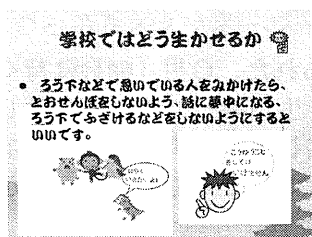 学校ではどう生かせるか
• ろう下などで急いでいる人をみかけたら、
とおせんぼをしないよう、話に夢中になる、
ろう下でふざけるなどをしないようにすると
いいです。
こうゆうこと
をしては
いけません